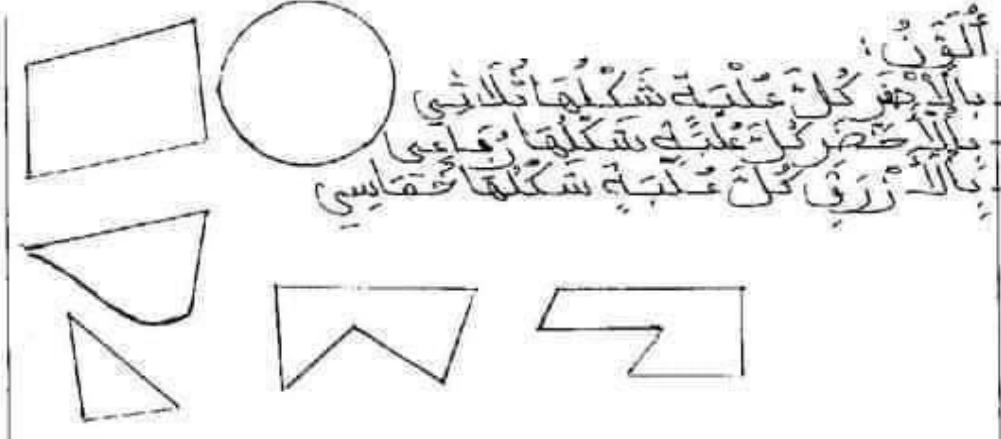 أُلَوِّنُ :
- بِالْأَحْمَر كُلَّ عُلْبَةٍ شَكْلُهَا ثُلَاثِي
- بِالْأَخْضَر كُلَّ عُلْبَةٍ شَكْلُهَا رُبَاعِي
- بِالْأَزْرَقِ كُلَّ عُلْبَةٍ شَكْلُهَا خُمَاسِي